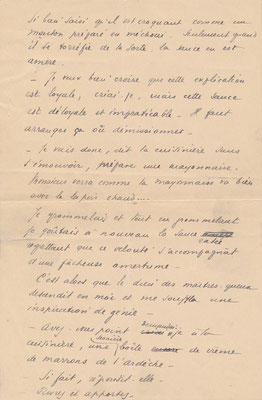 si bien saisi qu'il est croquant comme un
mouton préparé en méchoui. Seulement quand
il se torréfie de la sorte, la sauce en est
amère.
— Je veux bien croire que cette explication
est loyale, criai-je, mais cette sauce
est déloyale et impraticable. Il faut
arranger ça ou démissionner.
— Je vais donc, dit la cuisinière sans
s'émouvoir, préparer une mayonnaise.
Monsieur verra comme la mayonnaise va bien
avec le lapin chaud....
Je grommelais et tout en
je goûtais à nouveau la sauce
regrettant que ce velouté s'accompagnât
d'une fâcheuse amertume.
C'est alors que le dieu des maîtres-queux
descendit en moi et me souffla une
inspiration de génie —
— Avez-vous point, demandai-je à la
cuisinière, une boîte de crème
de marrons de l'ardèche —
Si fait, répondit-elle —
Ouvrez et apportez —